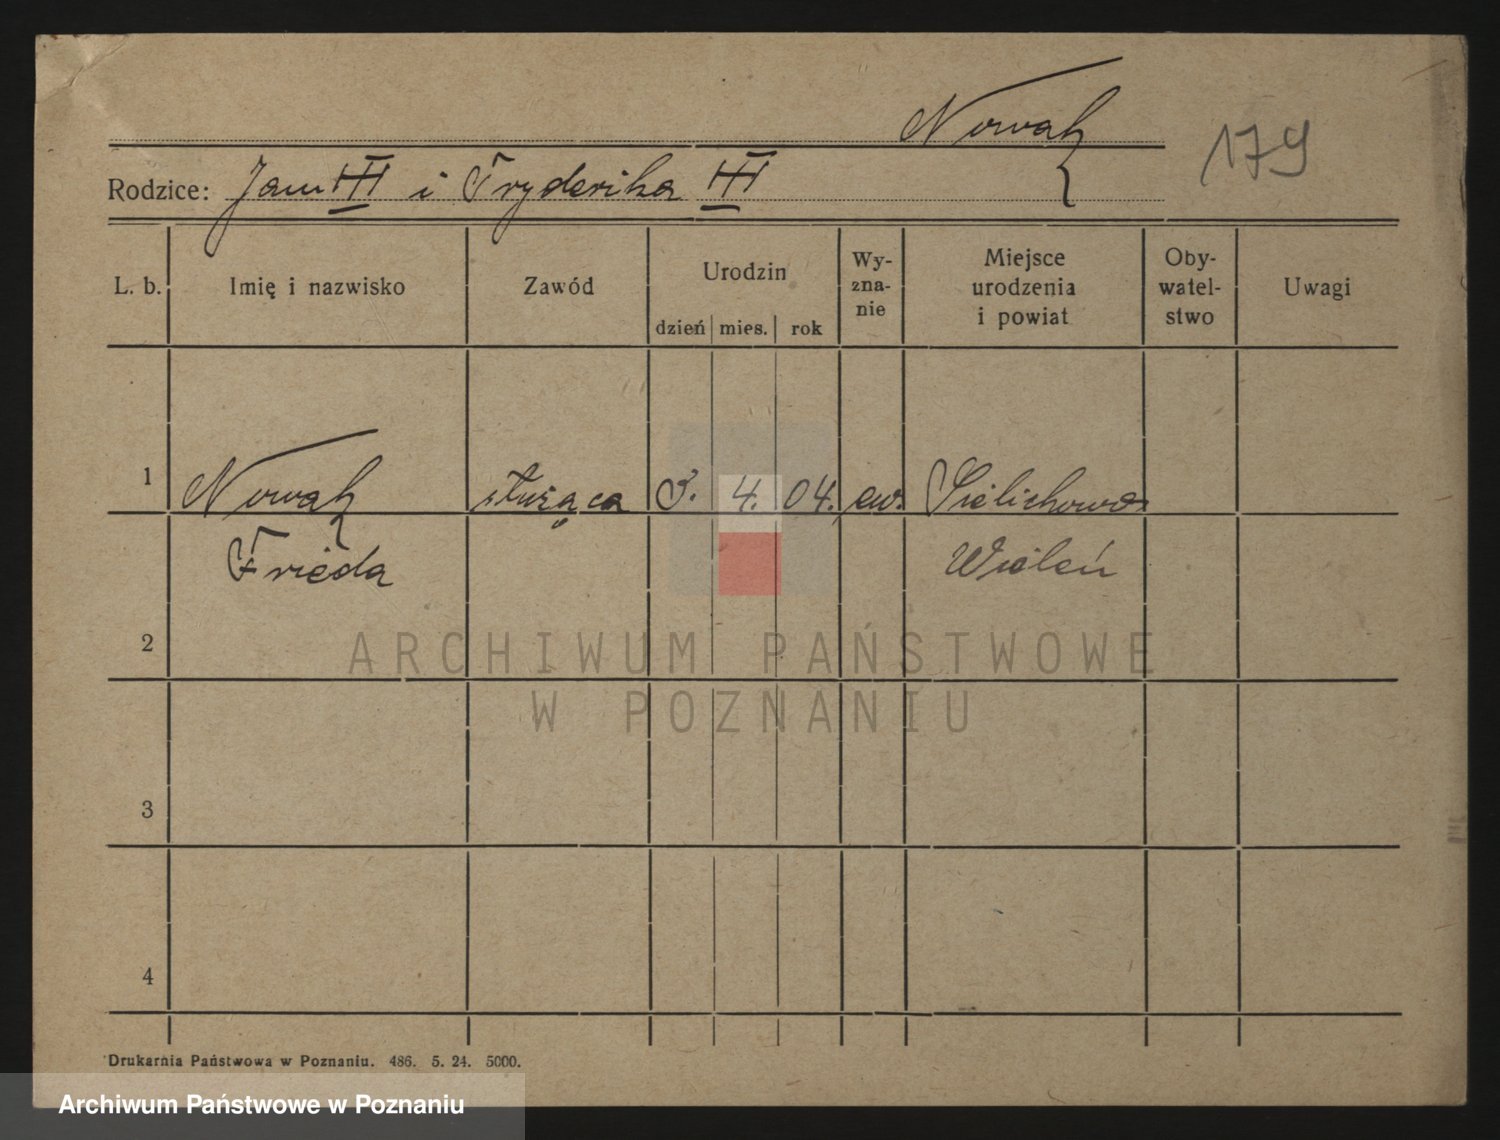 Nowak
179
Rodzice: Jan i Fryderika
L. b. Imię i nazwisko Zawód Urodzin dzień mies. rok Wy-zna-nie Miejsce urodzenia i powiat Oby-watel-stwo Uwagi
1 Nowak służąca 3. 4. 04. ew.
Frieda Wieleń
2
ARCHIWUM PAŃSTWOWE
W POZNANIU
3
4
Drukarnia Państwowa w Poznaniu. 486. 5. 24. 5000.
Archiwum Państwowe w Poznaniu